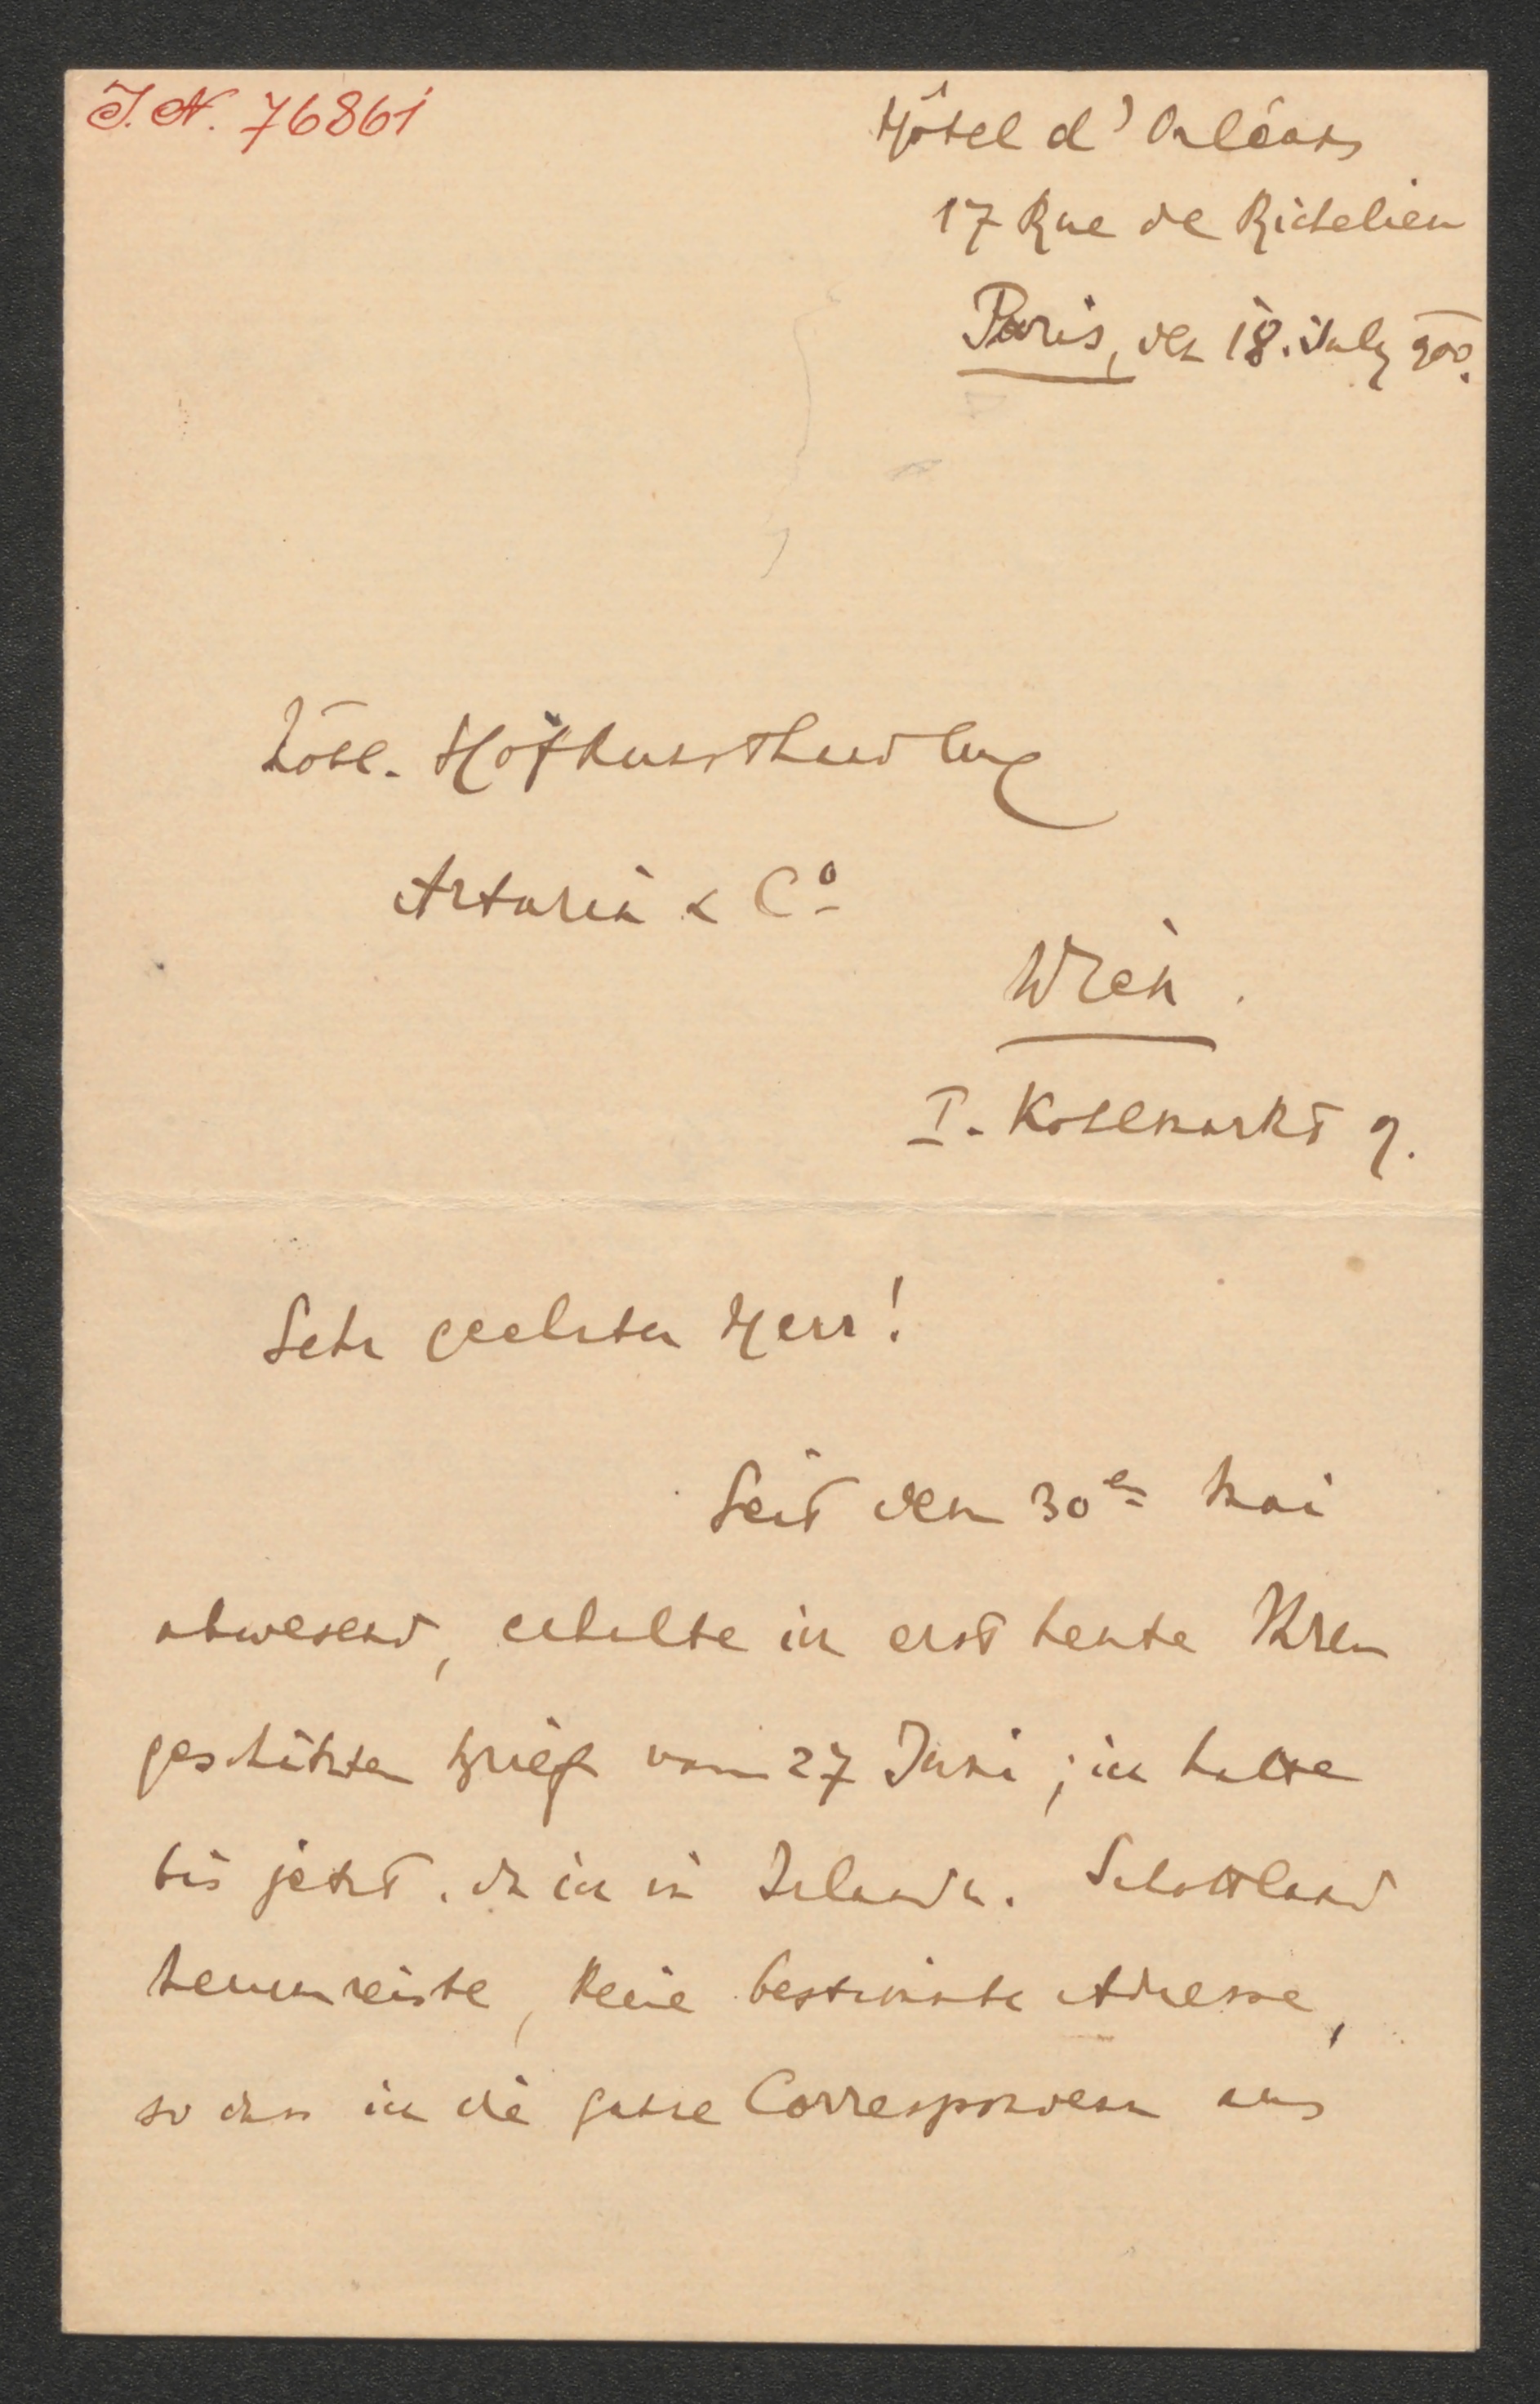 J.N. 76861
Hôtel d'Orléans
17 Rue de Richelieu
Paris, den 18. July 900.
Löbl. Hofkunsthandlung
Artaria & Cº
Wien.
I. Kohlmarkt 9.
Sehr geehrter Herr!
Seit dem 30en Mai
abwesend, erhalte ich erst heute Ihren
geschätzten Brief vom 27 Juni; ich hatte
bis jetzt, da ich in Irland u. Schottland
herumreiste, keine bestimmte Adresse,
so dass ich die ganze Correspondenz aus